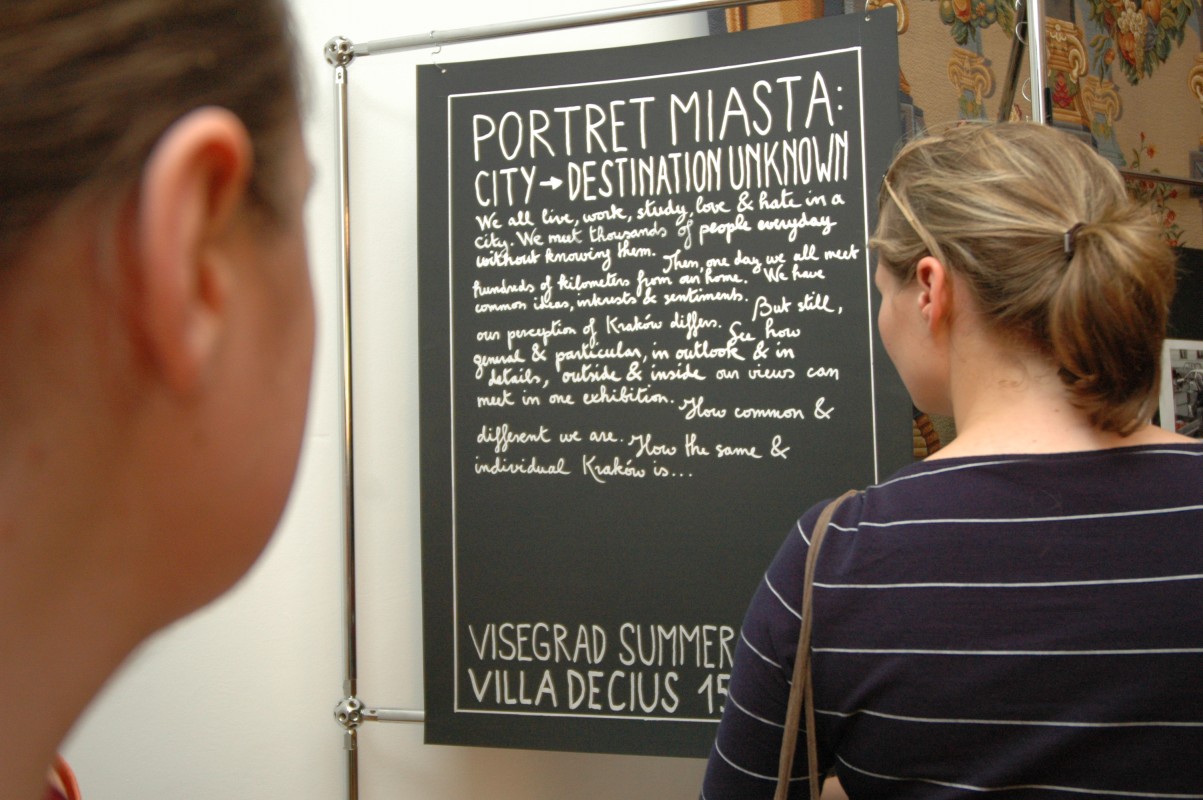 PORTRET MIASTA:
CITY → DESTINATION UNKNOWN
We all live, work, study, love & hate in a
city. We meet thousands of people everyday
without knowing them. Then, one day we all meet
hundreds of kilometers from our home. We have
common ideas, interests & sentiments. But still,
our perception of Kraków differs. See how
general & particular, in outlook & in
details, outside & inside our views can
meet in one exhibition. How common &
different we are. How the same &
individual Kraków is...
VISEGRAD SUMMER
VILLA DECIUS 15